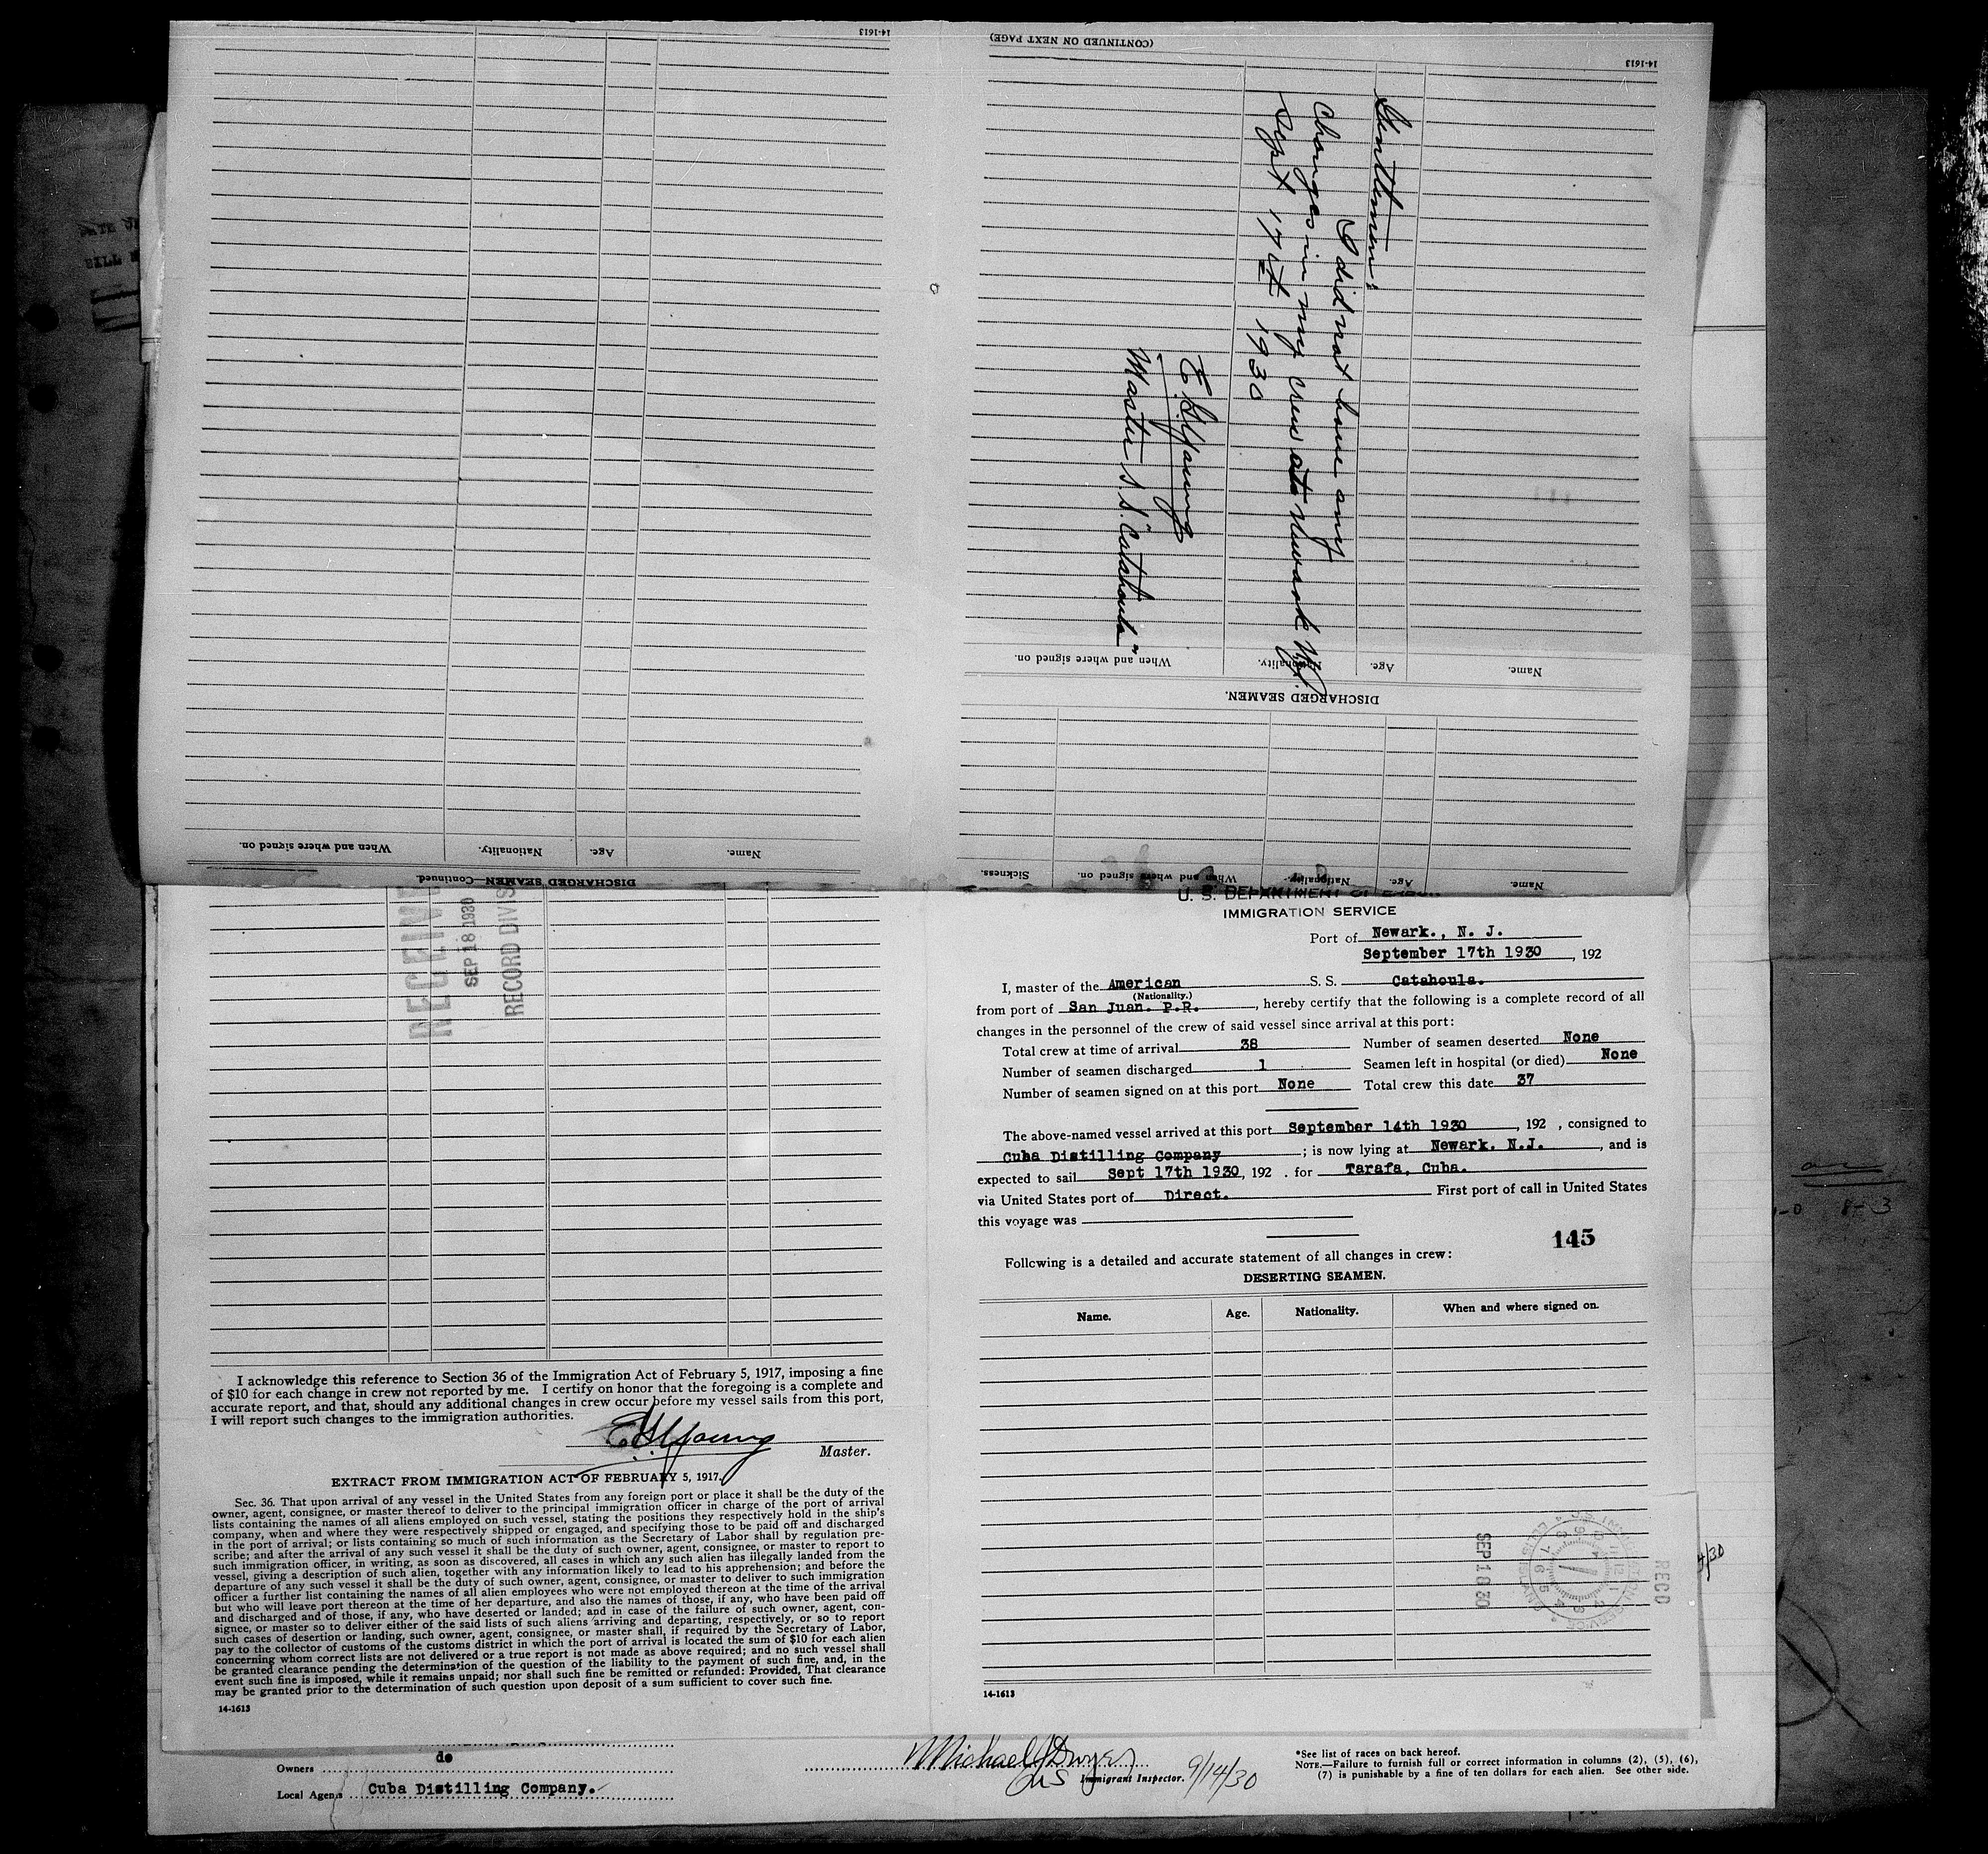 14-1613
(CONTINUED ON NEXT PAGE)
14-1613
Gentlemen:
I did not have any
changes in my crew at Newark N.J.
Sept 17th 1930
E. H. Young
Master S.S. "Catahoula"
When and where signed on.
Nationality.
Age.
Name.
DISCHARGED SEAMEN.
Sickness.
When and where signed on.
Nationality.
Age.
Name.
When and where signed on.
Nationality.
Age.
Name.
DISCHARGED SEAMEN—Continued.
SEP 18 1930
U. S. DEPARTMENT OF LABOR
IMMIGRATION SERVICE
Port of Newark., N. J.
September 17th 1930, 192
I, master of the American S. S. Catahoula.
(Nationality.)
from port of San Juan. P.R., hereby certify that the following is a complete record of all
changes in the personnel of the crew of said vessel since arrival at this port:
Total crew at time of arrival 38 Number of seamen deserted None
Number of seamen discharged 1 Seamen left in hospital (or died) None
Number of seamen signed on at this port None Total crew this date 37
The above-named vessel arrived at this port September 14th 1930, 192 , consigned to
Cuba Distilling Company ; is now lying at Newark. N.J. , and is
expected to sail Sept 17th 1930, 192 . for Tarafa, Cuba.
via United States port of Direct. First port of call in United States
this voyage was
145
Following is a detailed and accurate statement of all changes in crew:
DESERTING SEAMEN.
Name. Age. Nationality. When and where signed on.
SEP 18 30
RECD
14-1613
I acknowledge this reference to Section 36 of the Immigration Act of February 5, 1917, imposing a fine
of $10 for each change in crew not reported by me. I certify on honor that the foregoing is a complete and
accurate report, and that, should any additional changes in crew occur before my vessel sails from this port,
I will report such changes to the immigration authorities.
E. H. Young
Master.
EXTRACT FROM IMMIGRATION ACT OF FEBRUARY 5, 1917.
Sec. 36. That upon arrival of any vessel in the United States from any foreign port or place it shall be the duty of the
owner, agent, consignee, or master thereof to deliver to the principal immigration officer in charge of the port of arrival
lists containing the names of all aliens employed on such vessel, stating the positions they respectively hold in the ship's
company, when and where they were respectively shipped or engaged, and specifying those to be paid off and discharged
in the port of arrival; or lists containing so much of such information as the Secretary of Labor shall by regulation pre-
scribe; and after the arrival of any such vessel it shall be the duty of such owner, agent, consignee, or master to report to
such immigration officer, in writing, as soon as discovered, all cases in which any such alien has illegally landed from the
vessel, giving a description of such alien, together with any information likely to lead to his apprehension; and before the
departure of any such vessel it shall be the duty of such owner, agent, consignee, or master to deliver to such immigration
officer a further list containing the names of all alien employees who were not employed thereon at the time of the arrival
but who will leave port thereon at the time of her departure, and also the names of those, if any, who have been paid off
and discharged and of those, if any, who have deserted or landed; and in case of the failure of such owner, agent, con-
signee, or master so to deliver either of the said lists of such aliens arriving and departing, respectively, or so to report
such cases of desertion or landing, such owner, agent, consignee, or master shall, if required by the Secretary of Labor,
pay to the collector of customs of the customs district in which the port of arrival is located the sum of $10 for each alien
concerning whom correct lists are not delivered or a true report is not made as above required; and no such vessel shall
be granted clearance pending the determination of the question of the liability to the payment of such fine, and, in the
event such fine is imposed, while it remains unpaid; nor shall such fine be remitted or refunded: Provided, That clearance
may be granted prior to the determination of such question upon deposit of a sum sufficient to cover such fine.
14-1613
do
Owners
Local Agents Cuba Distilling Company.
Michael J Dwyer
Immigrant Inspector. 9/14/30
*See list of races on back hereof.
NOTE.—Failure to furnish full or correct information in columns (2), (5), (6),
(7) is punishable by a fine of ten dollars for each alien. See other side.